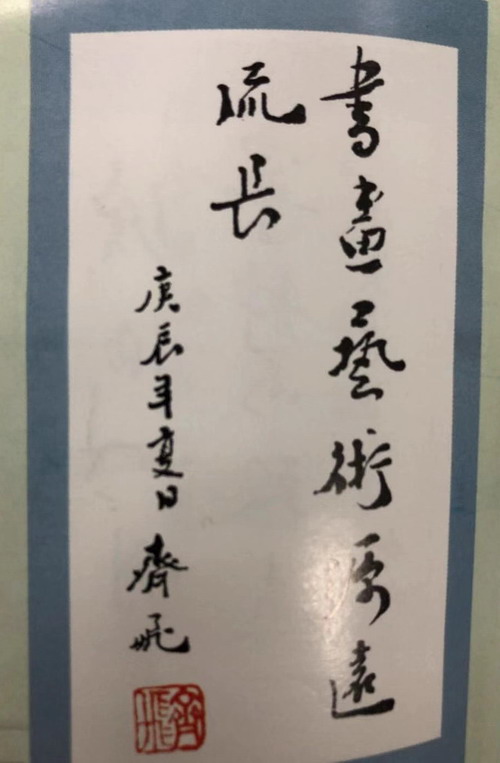 書畫藝術源遠
流長
庚辰年夏日 齊飛
齊飛